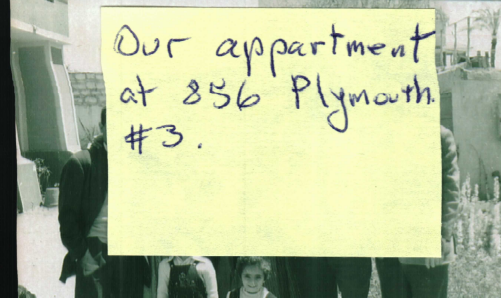 Our appartment
at 856 Plymouth.
#3.